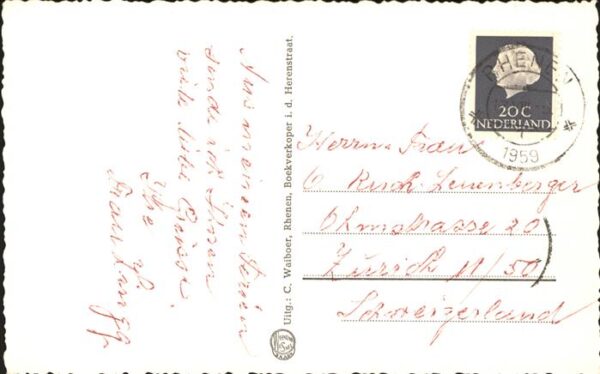 Aus meinem Ferien
sende ich Ihnen
viele liebe Grüsse.
Ihre
Frau
Uitg.: C. Waiboer, Rhenen, Boekverkoper i. d. Herenstraat.
RHENEN
1959
20 C
NEDERLAND
Herrn. Frau
Ruch. Leuenberger
Ohmstrasse 20
Zürich 11/50
Schweizerland